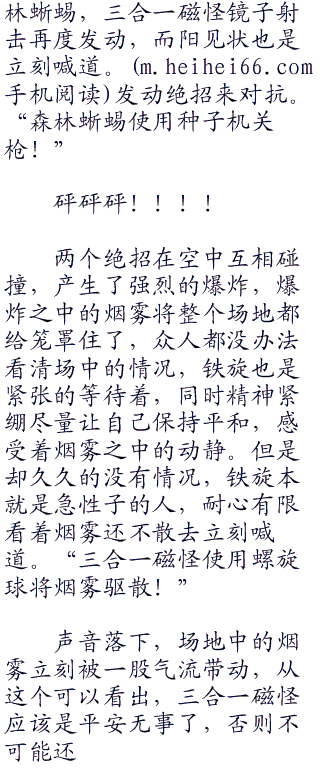 林蜥蜴，三合一磁怪镜子射
击再度发动，而阳见状也是
立刻喊道。(m.heihei66.com
手机阅读)发动绝招来对抗。
“森林蜥蜴使用种子机关
枪！”
砰砰砰！！！！
两个绝招在空中互相碰
撞，产生了强烈的爆炸，爆
炸之中的烟雾将整个场地都
给笼罩住了，众人都没办法
看清场中的情况，铁旋也是
紧张的等待着，同时精神紧
绷尽量让自己保持平和，感
受着烟雾之中的动静。但是
却久久的没有情况，铁旋本
就是急性子的人，耐心有限
看着烟雾还不散去立刻喊
道。“三合一磁怪使用螺旋
球将烟雾驱散！”
声音落下，场地中的烟
雾立刻被一股气流带动，从
这个可以看出，三合一磁怪
应该是平安无事了，否则不
可能还